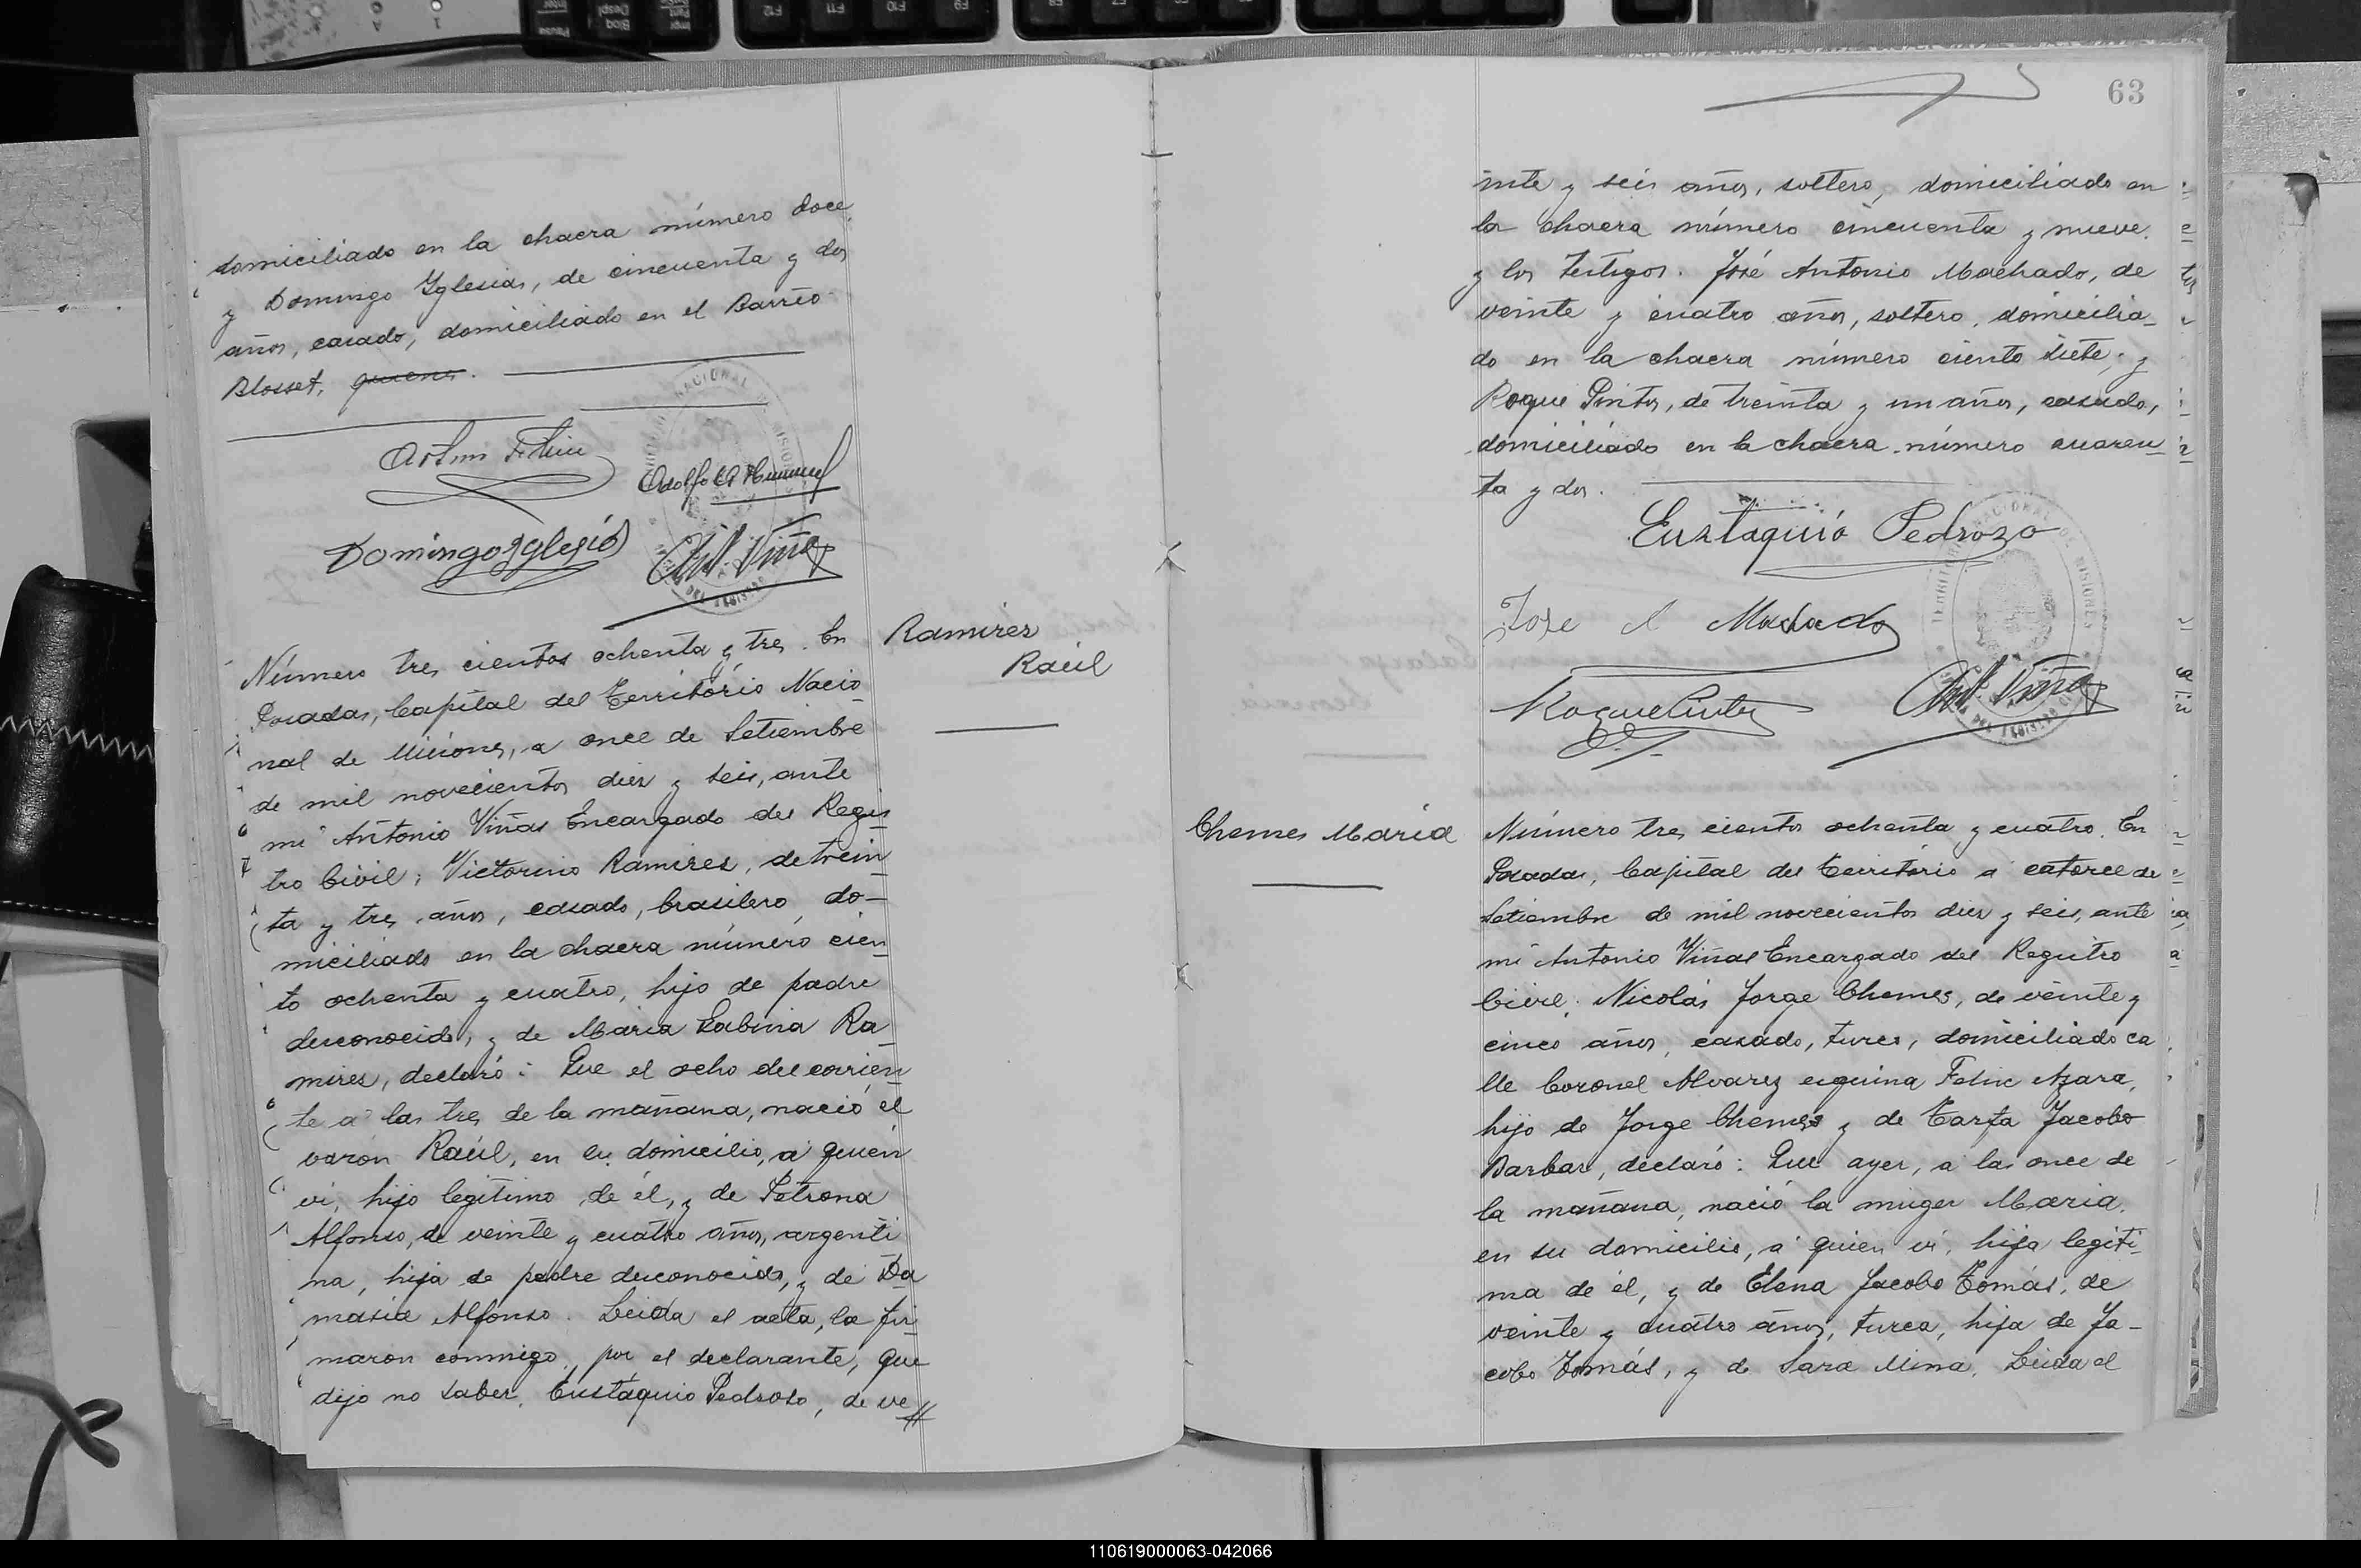 domiciliado en la chacra número doce
y Domingo Yglesias, de cincuenta y dos
años, casado, domiciliado en el Barrio
Blosset, quienes.
Adolfo
Domingo Yglesias
Ant. Viñas
Número tres cientos ochenta y tres. En
Posadas, Capital del Territorio Nacio
nal de Misiones, a once de Setiembre
de mil novecientos diez y seis, ante
mi Antonio Viñas Encargado del Regis
tro Civil; Victorino Ramires, de trein
ta y tres años, casado, brasilero, do-
miciliado en la chacra número cien
to ochenta y cuatro, hijo de padre
desconocido, y de Maria Sabina Ra
mires, declaró: Que el ocho del corrien
te a las tres de la mañana, nació el
varon Raúl, en su domicilio, a quien
vi, hijo legitimo de él, y de Petrona
Alfonso, de veinte y cuatro años, argenti
na, hija de padre desconocido, y de Da
masia Alfonso. Leida el acta, la fir
maron conmigo, por el declarante, que
dijo no saber, Eustaquio Pedroso, de ve//
Ramires
Raúl
63
inte y seis años, soltero, domiciliado en
la chacra número cincuenta y nueve.
y los testigos: José Antonio Machado, de
veinte y cuatro años, soltero, domicilia
do en la chacra número ciento siete; y
Roque Pintos, de treinta y un años, casado,
domiciliado en la chacra número cuaren
ta y dos.
Eustaquio Pedrozo
Jose A Machado
Roque Pintos
Ant. Viñas
Chemes Maria
Número tres cientos ochenta y cuatro. En
Posadas, Capital del Territorio a catorce de
Setiembre de mil novecientos diez y seis, ante
mi Antonio Viñas Encargado del Registro
Civil; Nicolás Jorge Chemes, de veinte y
cinco años, casado, turco, domiciliado ca
lle Coronel Alvarez esquina Felix Azara,
hijo de Jorge Chemes y de Tarfa Jacobo
Barbar, declaró: Que ayer, a las once de
la mañana, nació la muger Maria,
en su domicilio, a quien vi, hija legiti
ma de él, y de Elena Jacobo Tomás, de
veinte y cuatro años, turca, hija de Ja-
cobo Tomás, y de Sara Mina. Leida el
110619000063-042066